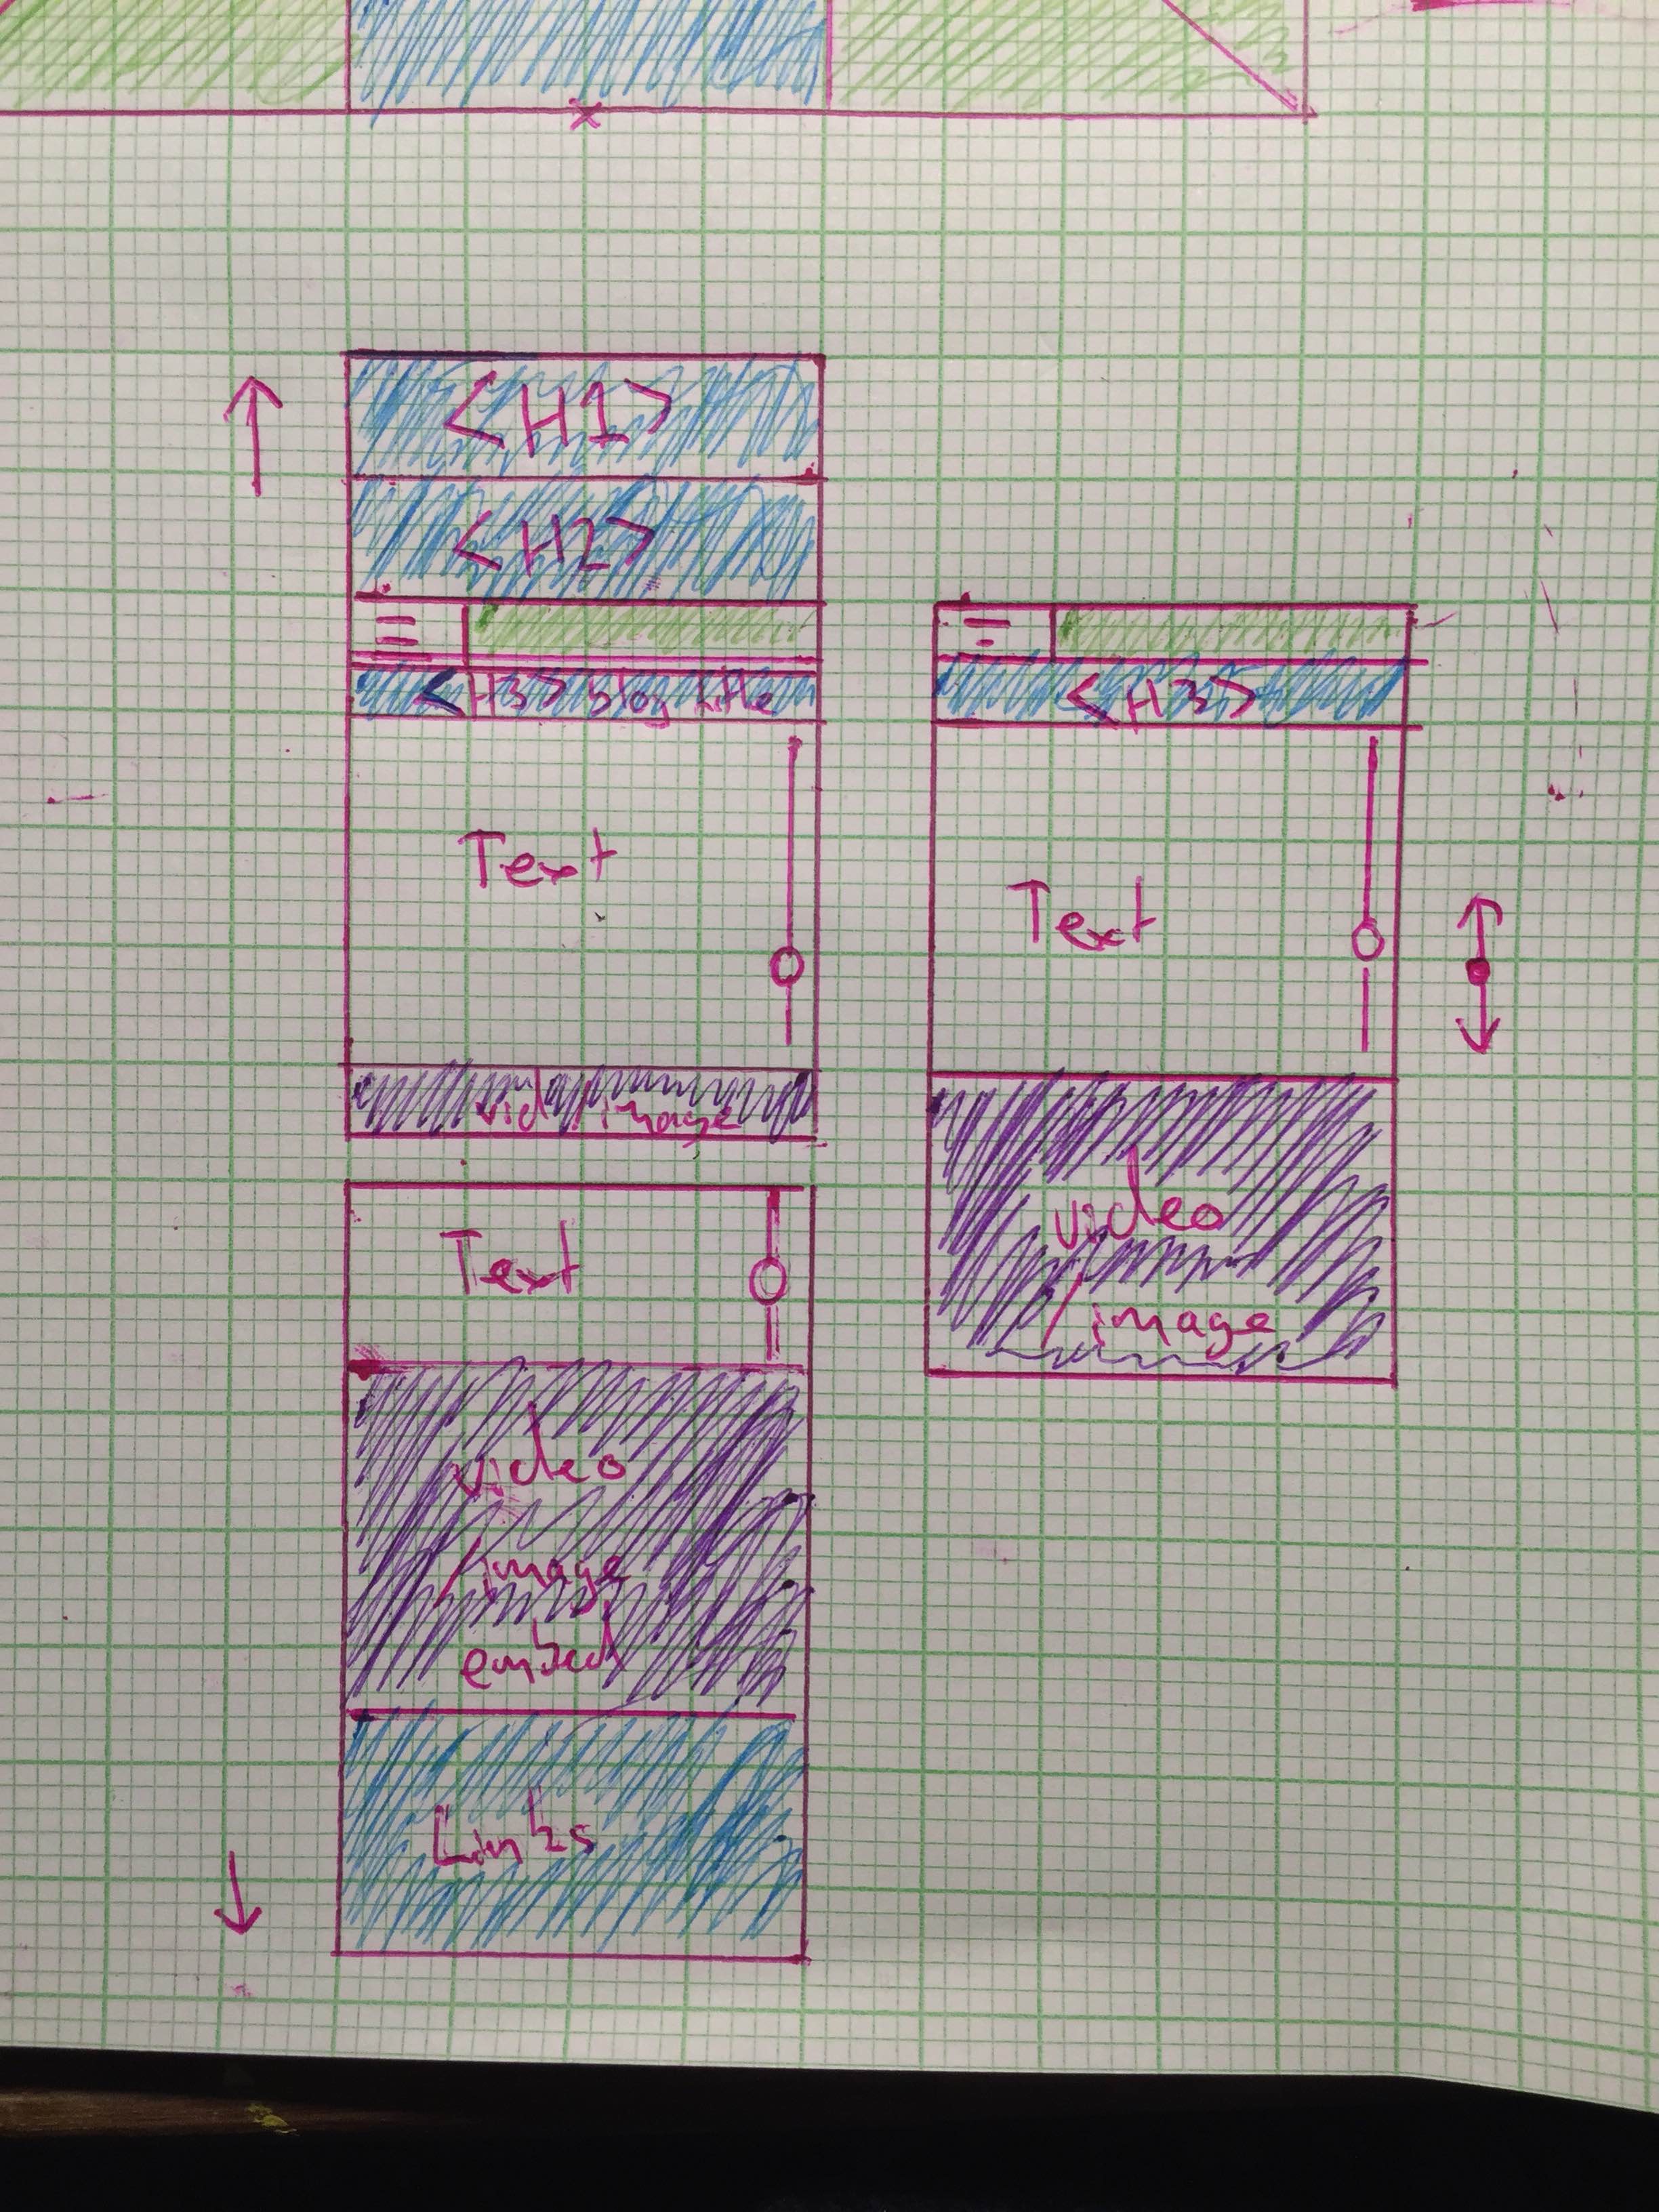 <H1>
<H2>
<H3> blog title
Text
vid / image
Text
video
/image
embed
Links
<H3>
Text
video
/image